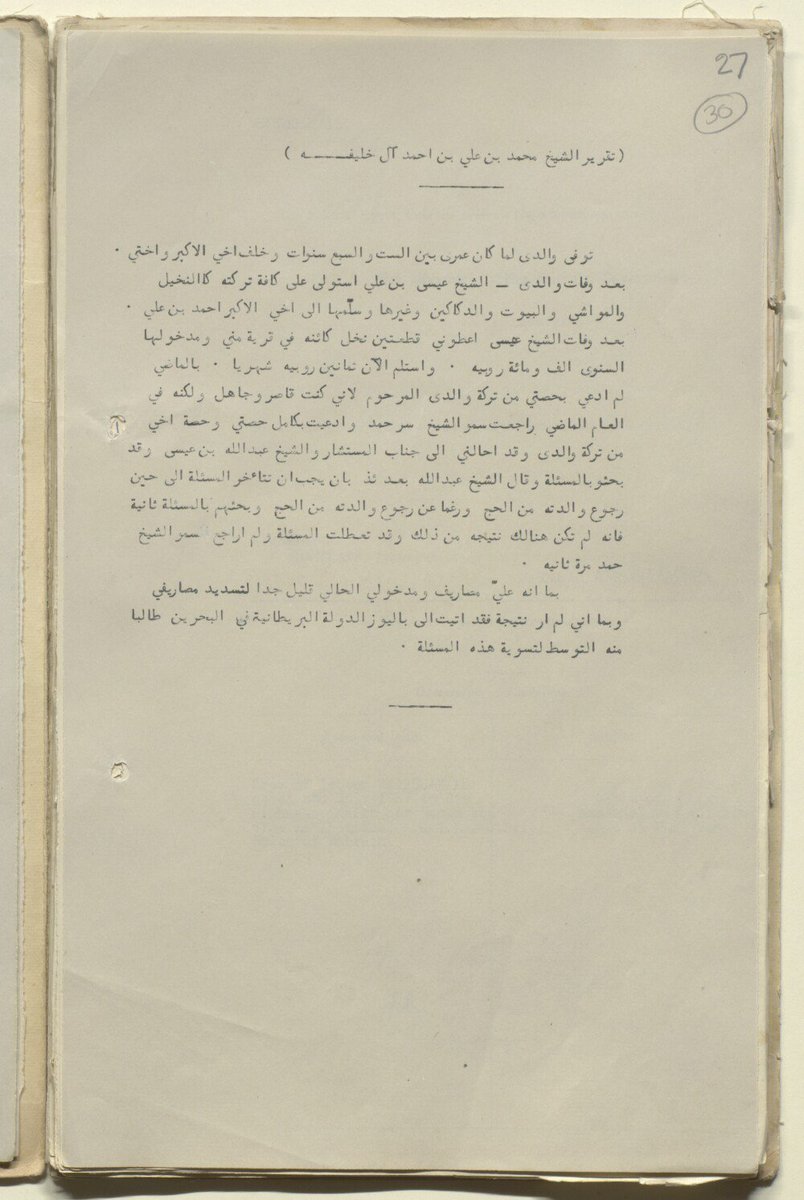 27
30
( تقرير الشيخ محمد بن علي بن احمد آل خليفـــــه )
توفى والدى لما كان عمرى بين الست والسبع سنوات وخلف اخي الاكبر واختي .
بعد وفات والدى ــ الشيخ عيسى بن علي استولى على كافة تركته كالنخيل
والمواشي والبيوت والدكاكين وغيرها وسلّمها الى اخي الاكبر احمد بن علي .
بعد وفات الشيخ عيسى اعطوني قطعتين نخل كائنه في قرية مني ومدخولها
السنوى الف ومائة روبيه . واستلم الآن ثمانين روبيه شهريا . بالماضي
لم ادعي بحصتي من تركة والدى المرحوم لاني كنت قاصر وجاهل ولكنه في
العام الماضي راجعت سمو الشيخ سر حمد وادعيت بكامل حصتي وحصة اخي
من تركة والدى وقد احالني الى جناب المستشار والشيخ عبدالله بن عيسى وقد
بحثو بالمسئلة وقال الشيخ عبدالله بعد ئذ بان يجب ان تتاءخر المسئلة الى حين
رجوع والدته من الحج ورغما عن رجوع والدته من الحج وبحثهم بالمسئلة ثانية
فانه لم تكن هنالك نتيجه من ذلك وقد تعطلت المسئلة ولم اراجع سمو الشيخ
حمد مرة ثانيه .
بما انه عليّ مصاريف ومدخولي الحالي قليل جدا لتسديد مصاريفي
وبما اني لم ار نتيجة فقد اتيت الى باليوز الدولة البريطانية في البحرين طالبا
منه التوسط لتسوية هذه المسئلة .